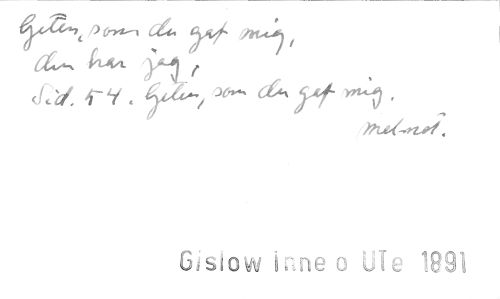 Geten, som du gaf mig,
den har jag,
Sid. 54. Geten, som du gaf mig.
mel-not.
Gislow Inne o UTe 1891